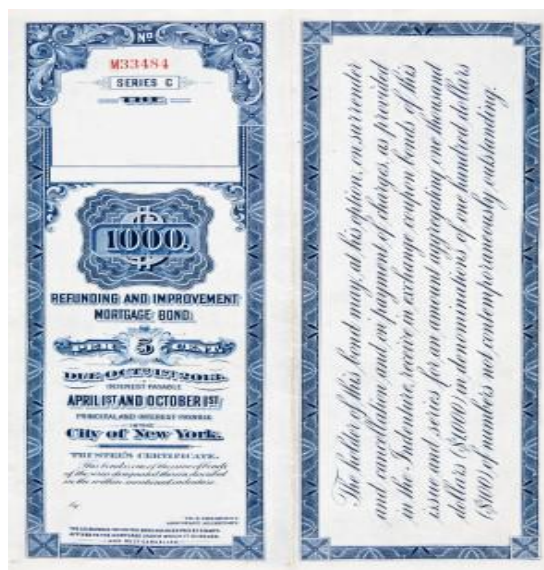 No
M33484
SERIES C
THE
1000.
REFUNDING AND IMPROVEMENT
MORTGAGE BOND.
PER 5 CENT.
DUE OCT. 1ST 2013.
INTEREST PAYABLE
APRIL 1ST AND OCTOBER 1ST
PRINCIPAL AND INTEREST PAYABLE
IN THE
City of New York.
TRUSTEE'S CERTIFICATE.
This bond is one of the series of bonds
of the issue designated therein, described
in the within mentioned indenture.
by
The holder of this bond may, at his option, on surrender
and cancellation, and on payment of charges, as provided
in the Indenture, receive in exchange coupon bonds of this
issue and series for an amount aggregating one thousand
dollars ($1,000) in denominations of one hundred dollars
($100) of numbers not contemporaneously outstanding.